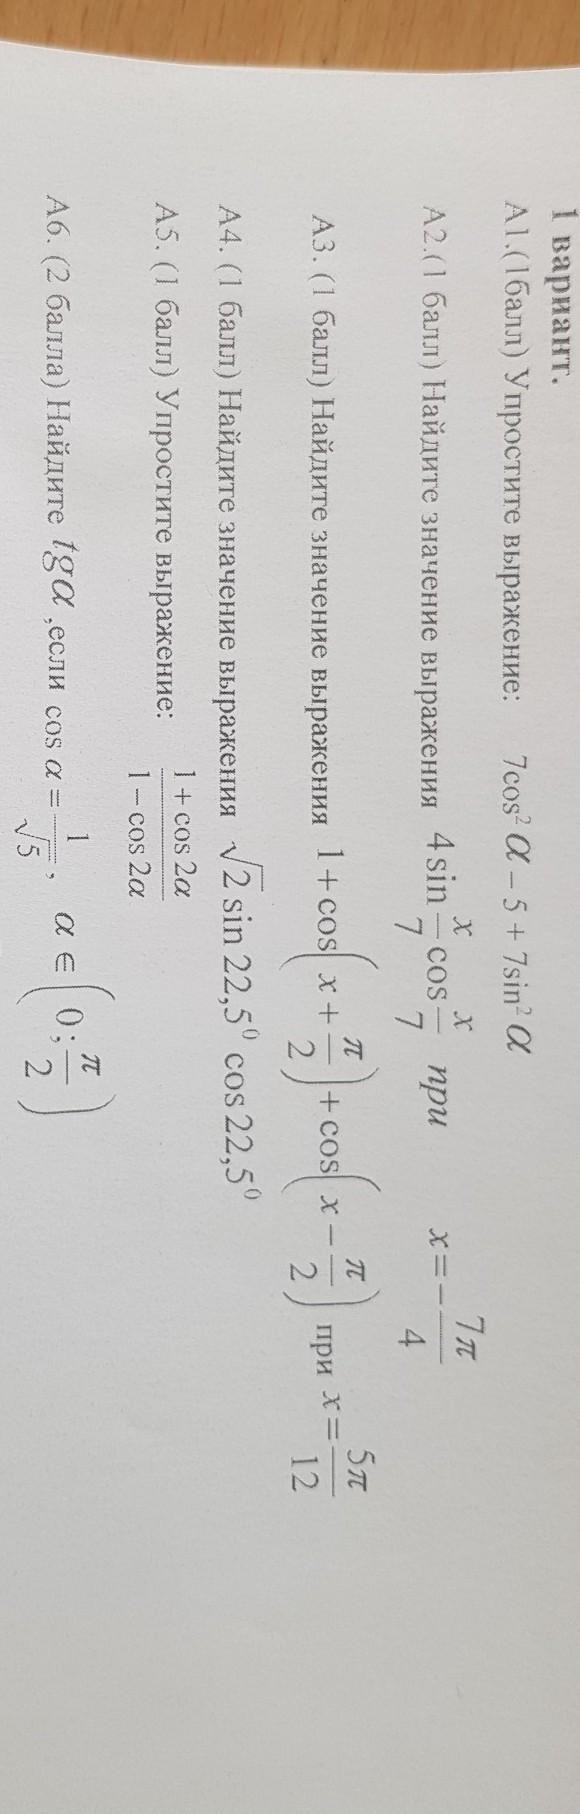 1 вариант.
А1.(1балл) Упростите выражение: 7cos² α − 5 + 7sin² α
А2.(1 балл) Найдите значение выражения 4 sin x/7 cos x/7 при x = − 7π/4
А3. (1 балл) Найдите значение выражения 1 + cos(x + π/2) + cos(x − π/2) при x = 5π/12
А4. (1 балл) Найдите значение выражения √2 sin 22,5⁰ cos 22,5⁰
А5. (1 балл) Упростите выражение: (1 + cos 2α)/(1 − cos 2α)
А6. (2 балла) Найдите tgα ,если cos α = 1/√5 , α ∈ (0; π/2)